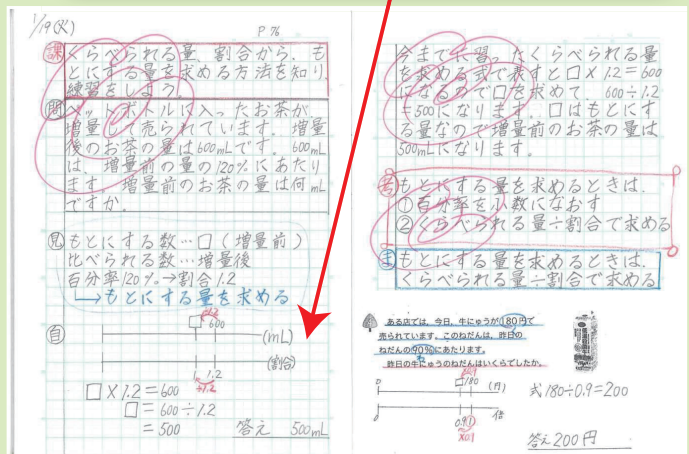 1/19(火)
P 76
課 くらべられる量、割合から、も
とにする量を求める方法を知り、
練習をしよう。
問 ペットボトルに入ったお茶が
増量して売られています。増量
後のお茶の量は600mLです。600mL
は、増量前の量の120%にあたり
ます。増量前のお茶の量は何mL
ですか。
見 もとにする数…□(増量前)
比べられる数…増量後
百分率120%→割合1.2
→もとにする量を求める
自
□ 600 (mL)
1 1.2 (割合)
□×1.2=600
□=600÷1.2
=500 答え 500mL
今までに習ったくらべられる量
を求める式で表すと□×1.2=600
になるので□を求めて 600÷1.2
=500になります。□はもとにす
る量なので増量前のお茶の量は
500mLになります。
考 もとにする量を求めるときは、
①百分率を小数になおす
②くらべられる量÷割合で求める
ま もとにする量を求めるときは、
くらべられる量÷割合で求める
ある店では、今日、牛にゅうが180円で
売られています。このねだんは、昨日の
ねだんの90%にあたります。
昨日の牛にゅうのねだんはいくらでしたか。
0 □ 180 (円)
式 180÷0.9=200
0 0.9 1 倍
答え 200円